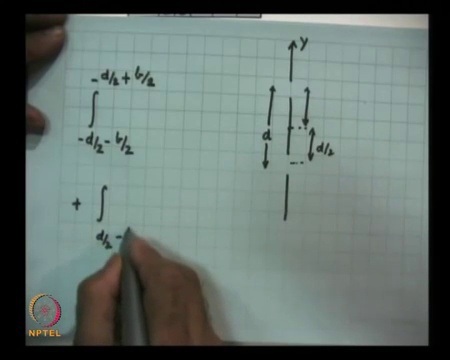 -d/2 + b/2
∫
-d/2 - b/2
+ ∫
d/2 -
Y
d
d/2
NPTEL